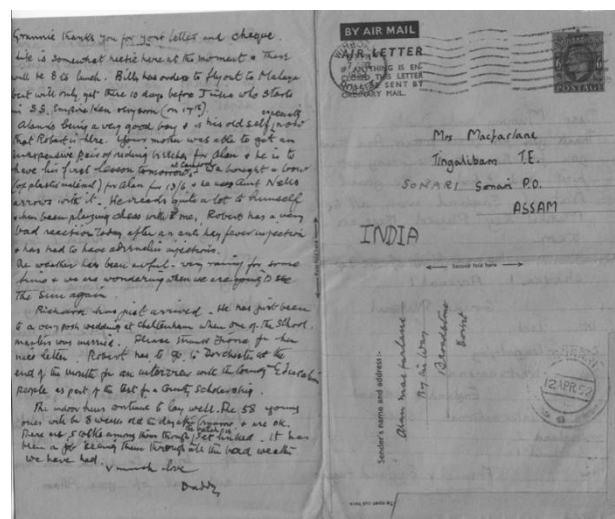 Grannie thanks you for your letter and cheque.
Life is somewhat hectic here at the moment & there
will be 8 to lunch. Billy has orders to fly out to Malaya
but will only get there 10 days before Julia who starts
in S.S. Empire Ken very soon (on 17th)
Alan is being a very good boy & is his old self now
that Robert is here. Your mother was able to get an
inexpensive pair of riding britches for Alan & he is to
have his first lesson tomorrow. I've bought a bow
(of plastic material) for Alan for 13/6 & he uses Aunt Nell's
arrows with it. He reads quite a lot to himself
& has been playing chess with me. Robert has a very
bad reaction today after an anti hay fever injection
& has had to have adrenalin injections.
The weather has been awful - very rainy for some
time & we are wondering when we are going to see
the sun again.
Richard has just arrived. He has just been
to a very posh wedding at Cheltenham when one of the school
masters was married. Please thank Fiona for her
nice letter. Robert has to go to Dorchester at the
end of the month for an interview with the County Education
people as part of the test for a County Scholarship.
The indoor hens continue to lay well. The 58 young
ones will be 8 weeks old the day after tomorrow & are OK.
There are 5 among them though sex linked. It has
been a job keeping them through all the bad weather
we have had.
V much love
Daddy
BY AIR MAIL
AIR LETTER
IF ANYTHING IS EN-
CLOSED THIS LETTER
WILL BE SENT BY
ORDINARY MAIL.
POSTAGE
Mrs Macfarlane
Tingalibam T.E.
SONARI Sonari P.O.
ASSAM
INDIA
First fold here
Second fold here
Sender's name and address :-
Alan Macfarlane
By the Way
Broadstone
Dorset
12 APR 52
To open cut here